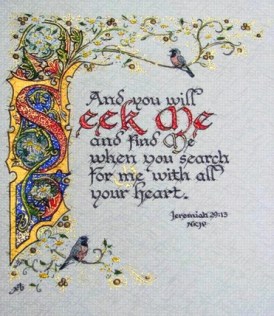 And you will
Seek Me
and find Me
when you search
for me with all
your heart.
Jeremiah 29:13
NKJV